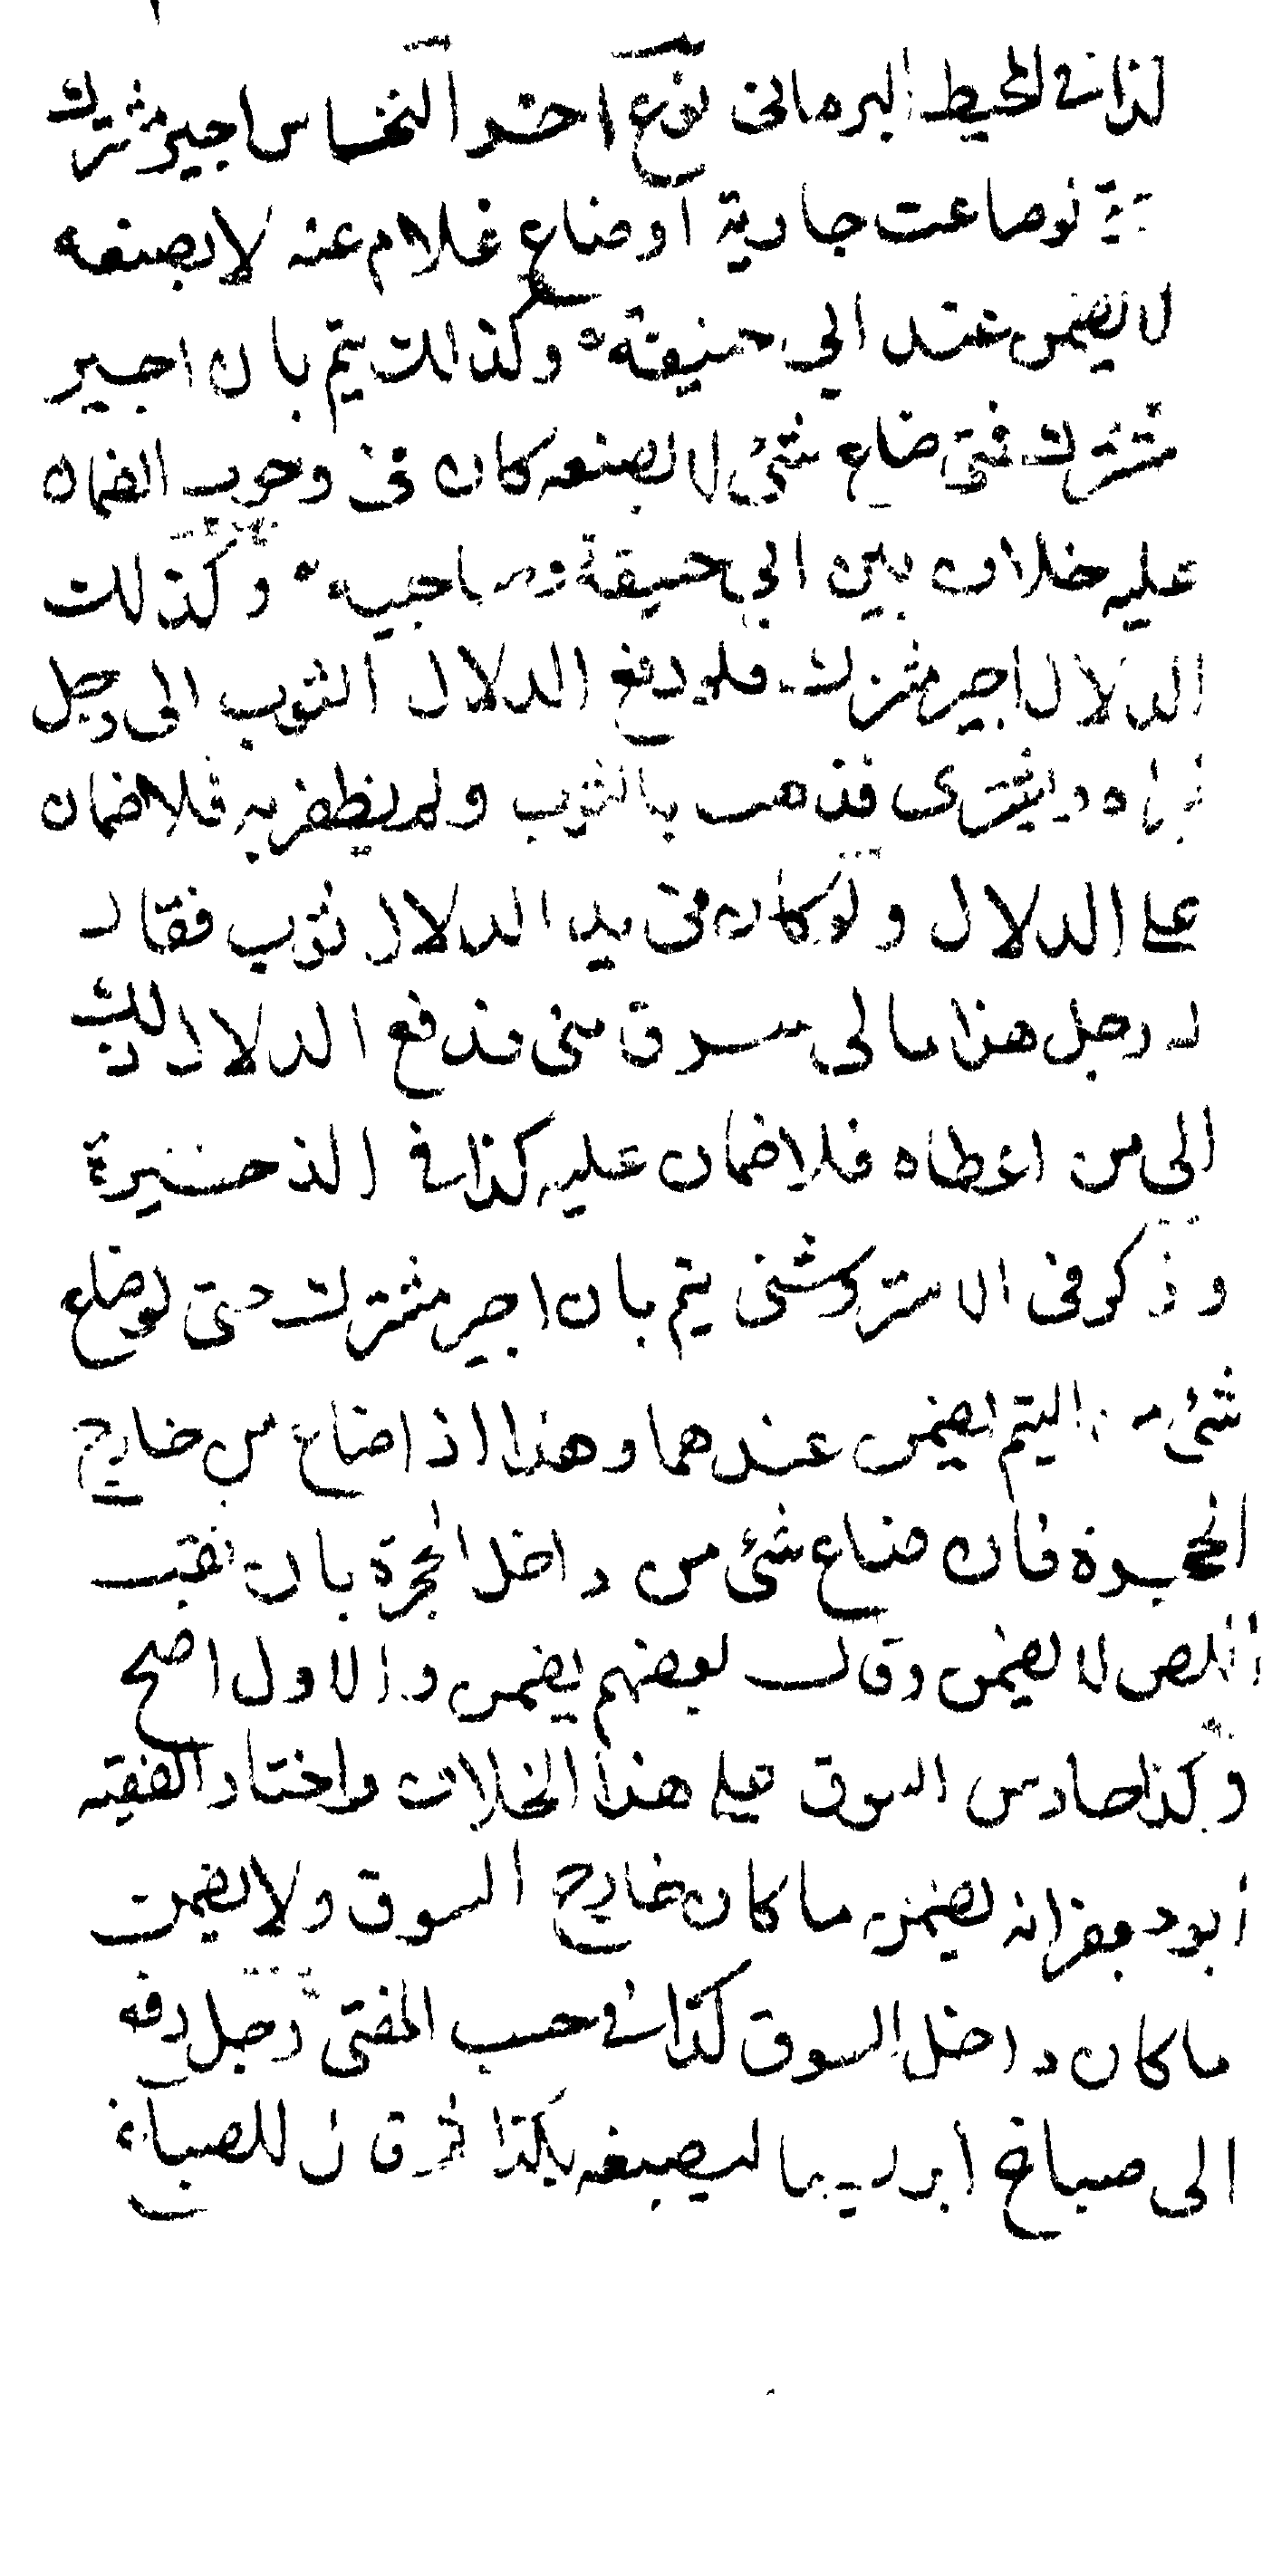 كذا في المحيط البرهاني نوع اخر النخاس اجير مشترك
لوضاعت جارية اوضاع غلام عنه لا بصنعه
لا يضمن عند ابي حنيفة وكذلك يتم بان اجير
مشترك فمتى ضاع شئ لا بصنعه كان في وجوب الضمان
عليه خلاف بين ابي حنيفة وصاحبيه وكذلك
الدلال اجير مشترك فلو دفع الدلال الثوب الى رجل
ليراه ويشترى فذهب بالثوب ولم يظفر به فلا ضمان
على الدلال ولو كان في يد الدلال ثوب فقال
له رجل هذا مالى سرق منى فدفع الدلال ذلك
الى من اعطاه فلا ضمان عليه كذا في الذخيرة
وذكر في الاستروشنى يتم بان اجير مشترك حتى لو ضاع
شئ من اليتم يضمن عندهما وهذا اذا ضاع من خارج
الحجرة فان ضاع شئ من داخل الحجرة بان نقب
اللص لا يضمن وقال بعضهم يضمن والاول اصح
وكذا حارس السوق على هذا الخلاف واختار الفقيه
ابو جعفر انه يضمن ما كان خارج السوق ولا يضمن
ما كان داخل السوق كذا في حسب المفتى رجل دفع
الى صباغ ابريسما ليصبغه بكذا ثم قال للصباغ